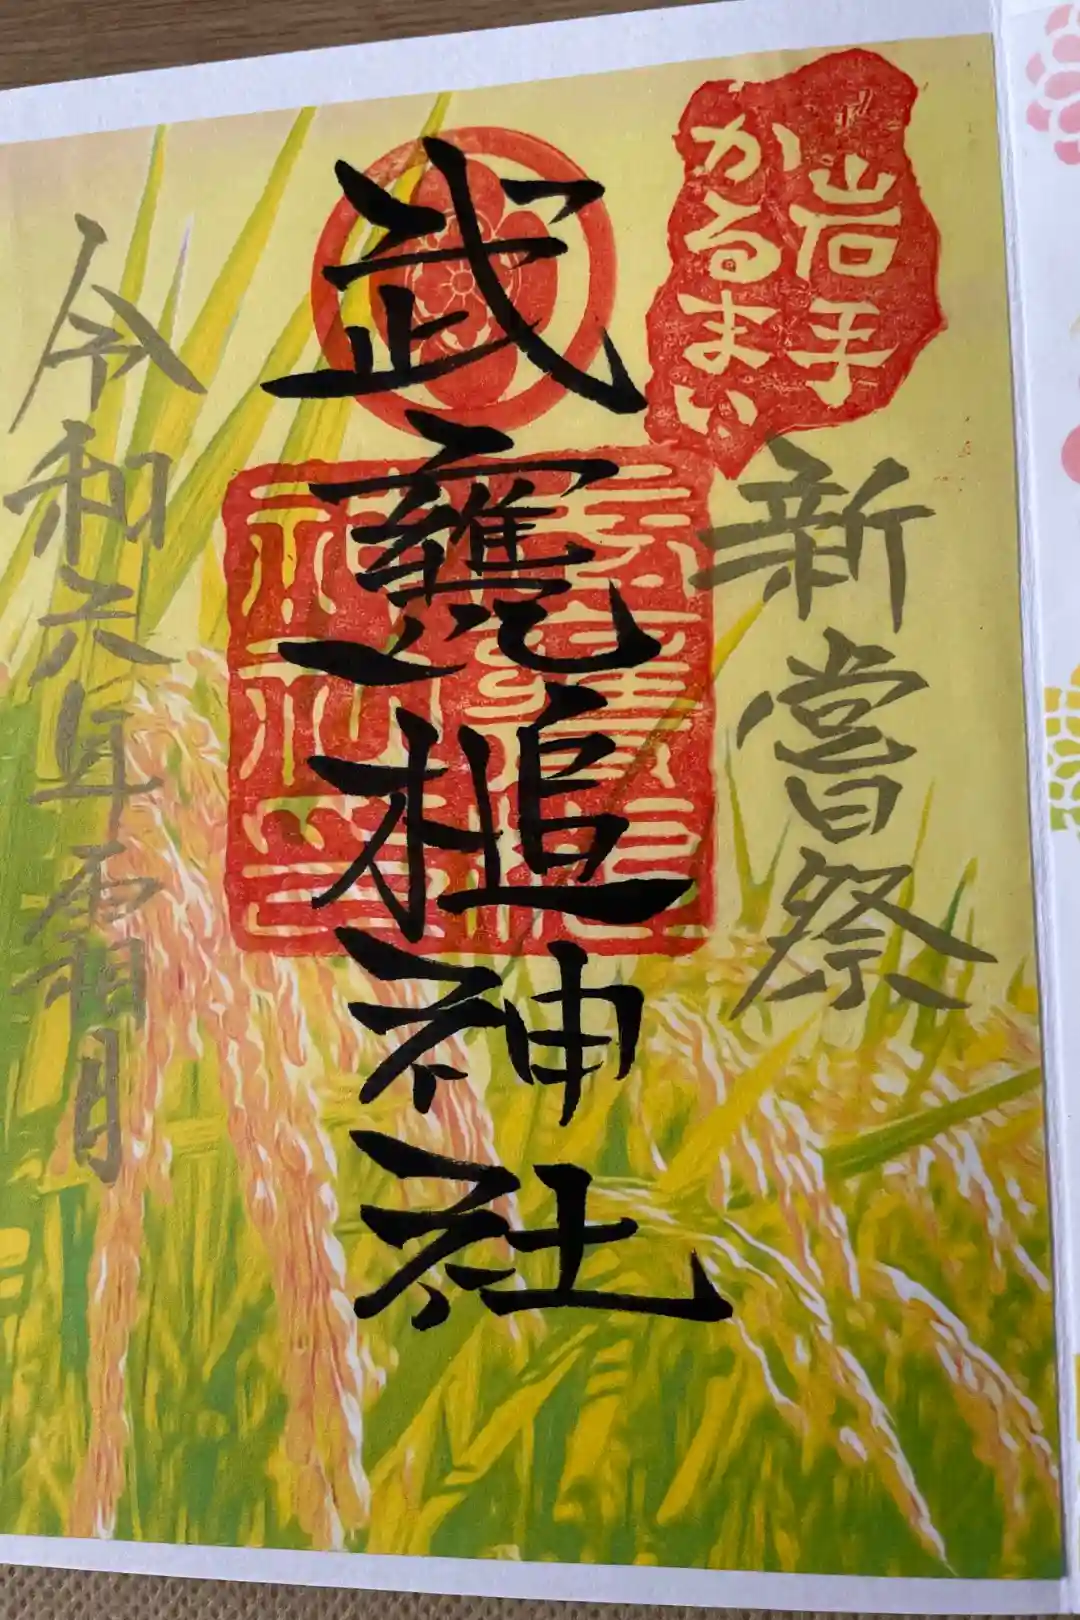 岩手
かるまい
新嘗祭
武甕槌神社
令和六年霜月